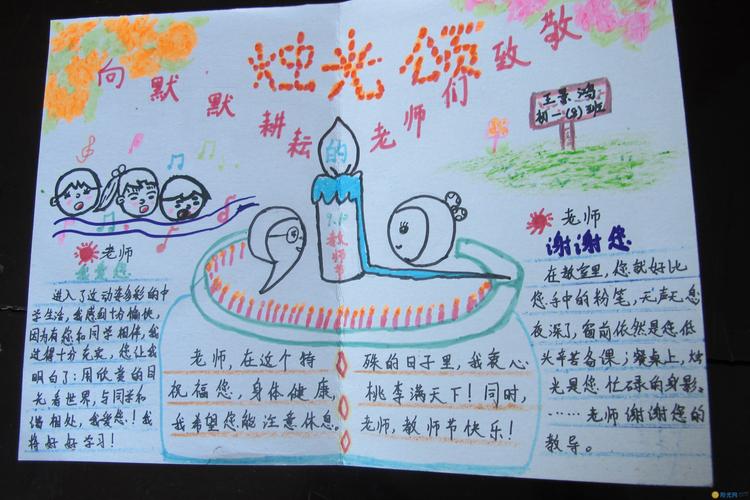 烛光颂
向默默耕耘的老师们致敬
王景鸿
初一(8)班
9.10
教师节
老师
我爱您
进入了这动姿多彩的中
学生活,我感到十分愉快,
因为有您和同学相伴,我
过得十分充实,您让我
明白了:用欣赏的目
光看世界,与同学和
谐相处,我爱您!我
将好好学习!
老师,在这个特殊的日子里,我衷心
祝福您,身体健康,桃李满天下!同时,
我希望您能注意休息.老师,教师节快乐!
老师
谢谢您
在教室里,您就好比
您手中的粉笔,无声无息
夜深了,窗前依然是您低
头辛苦备课;餐桌上,烛
光是您忙碌的身影。
……老师谢谢您的
教导。